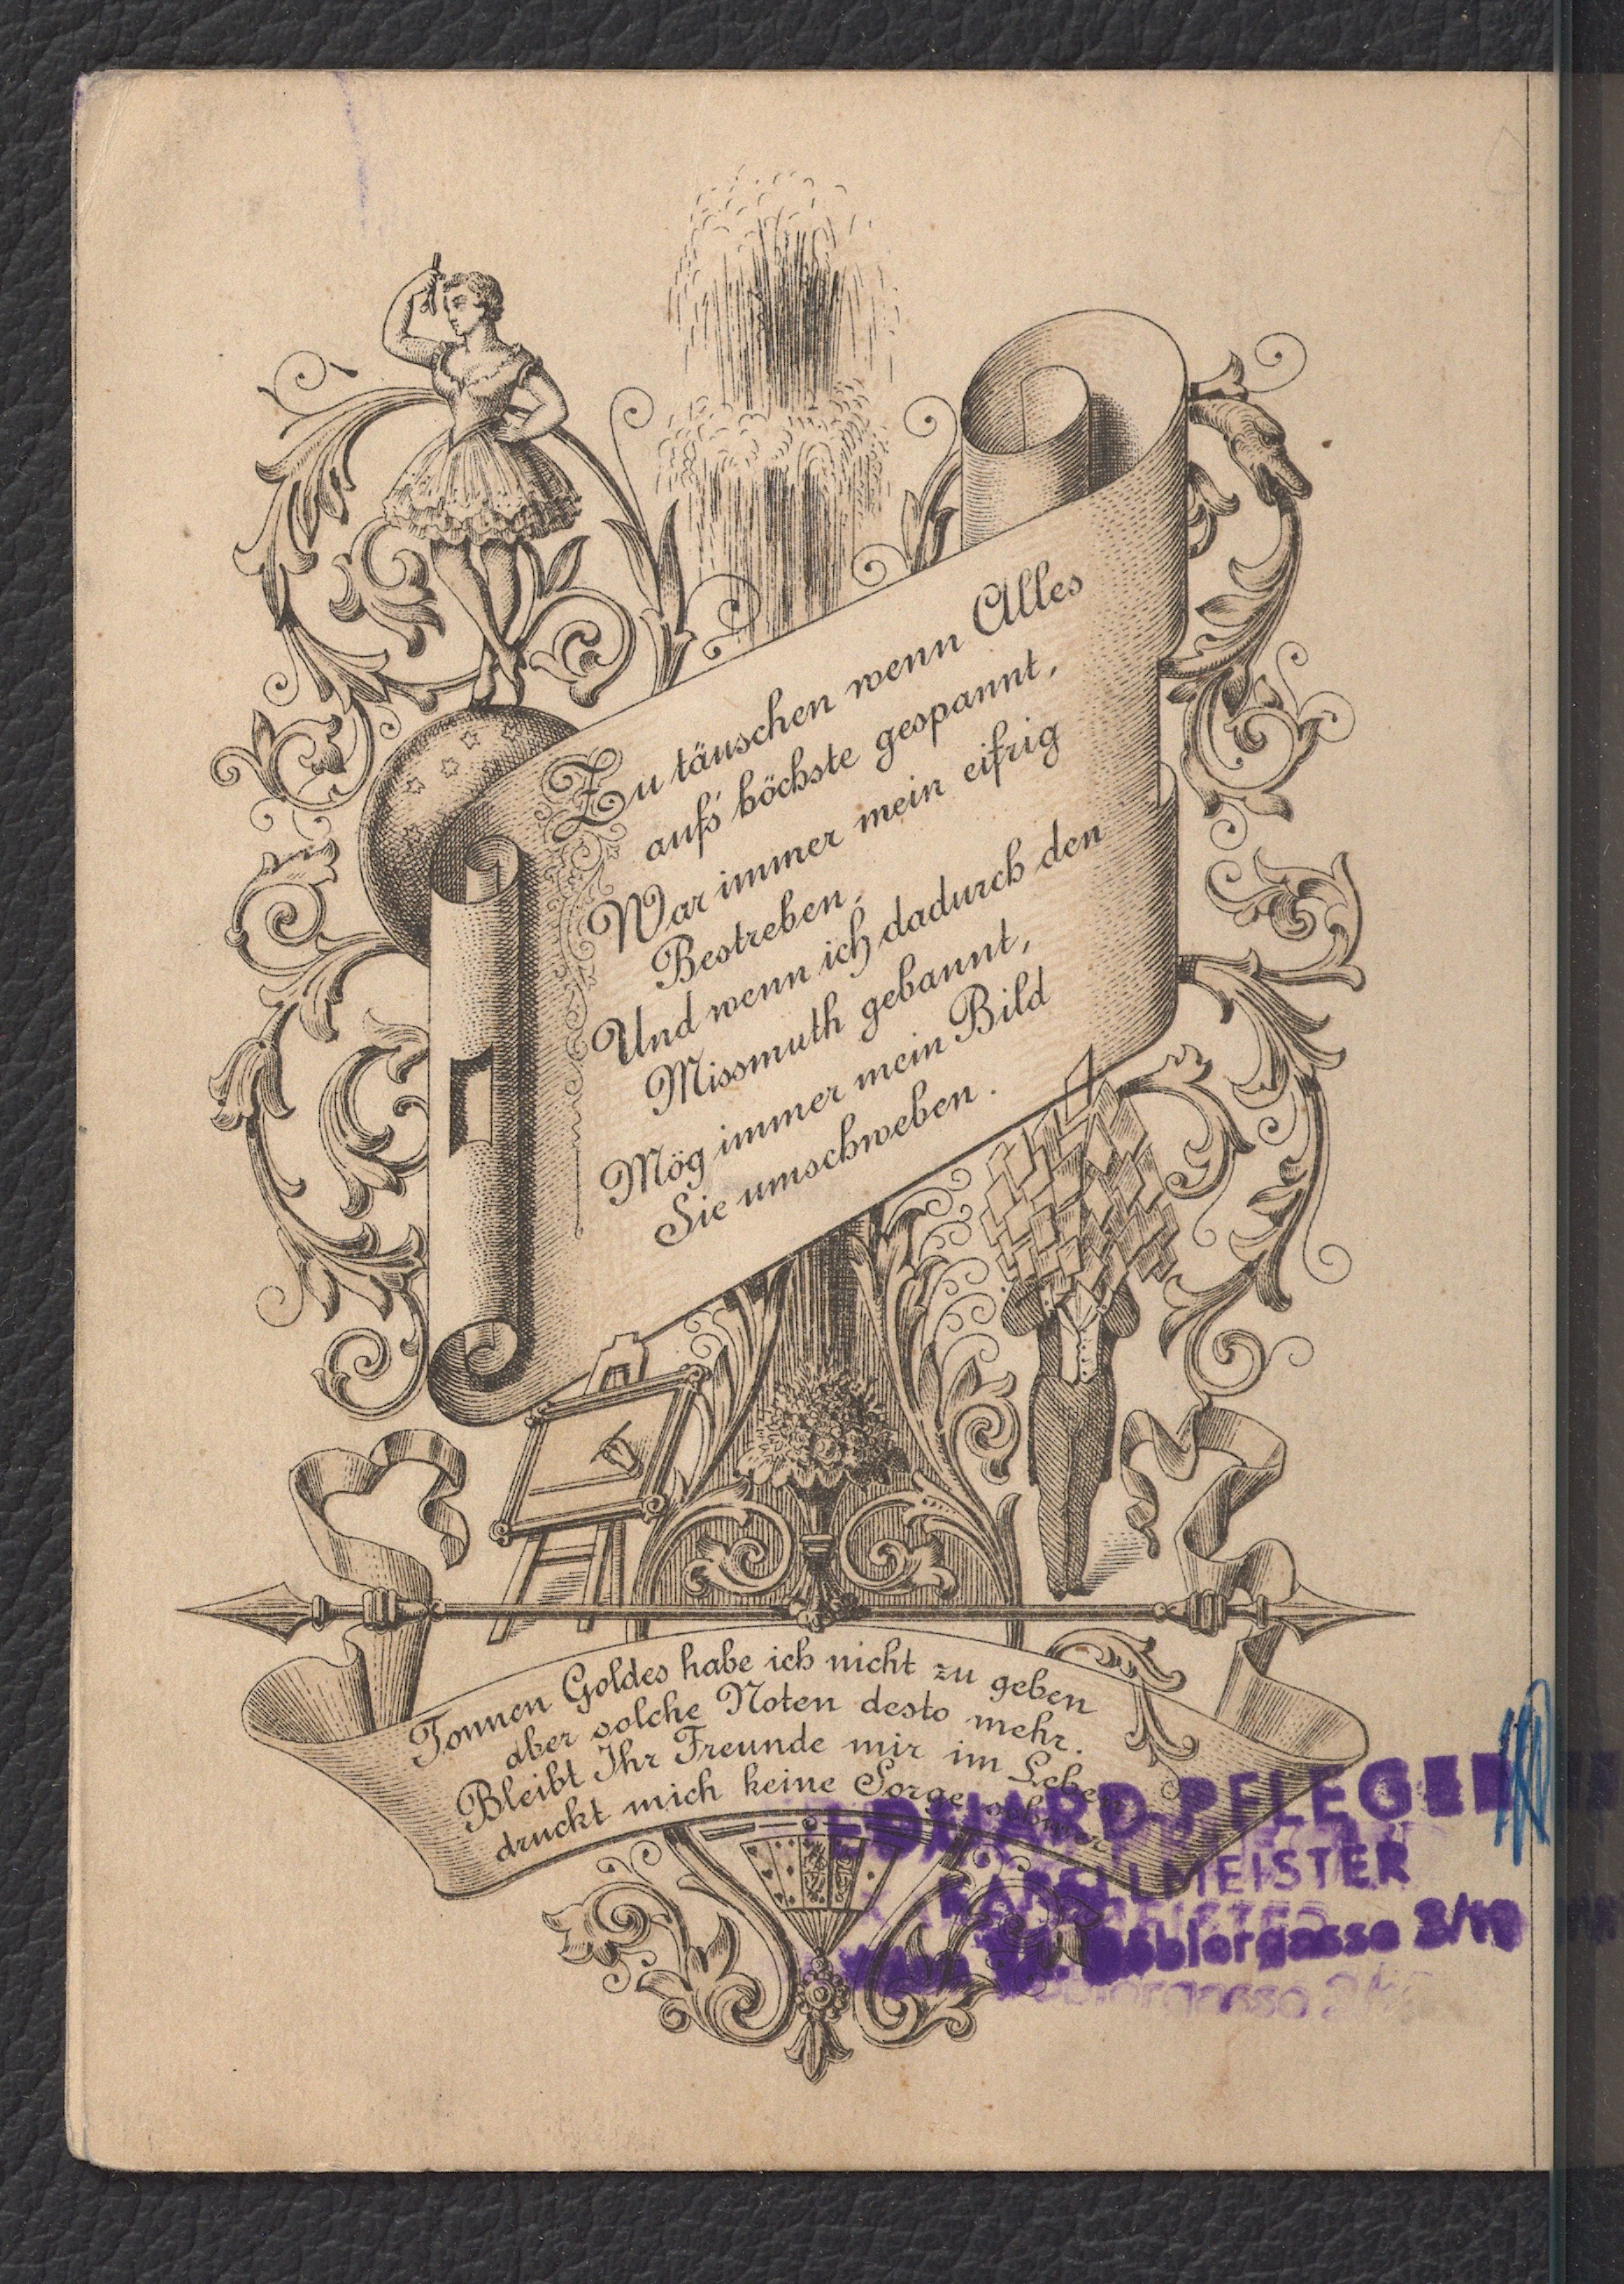 Zu täuschen wenn Alles
auf's höchste gespannt,
War immer mein eifrig
Bestreben,
Und wenn ich dadurch den
Missmuth gebannt,
Mög immer mein Bild
Sie umschweben.
Tonnen Goldes habe ich nicht zu geben
aber solche Noten desto mehr.
Bleibt Ihr Freunde mir im Leben
druckt mich keine Sorge sehr
PFLEGER
KAPELLMEISTER
2/19